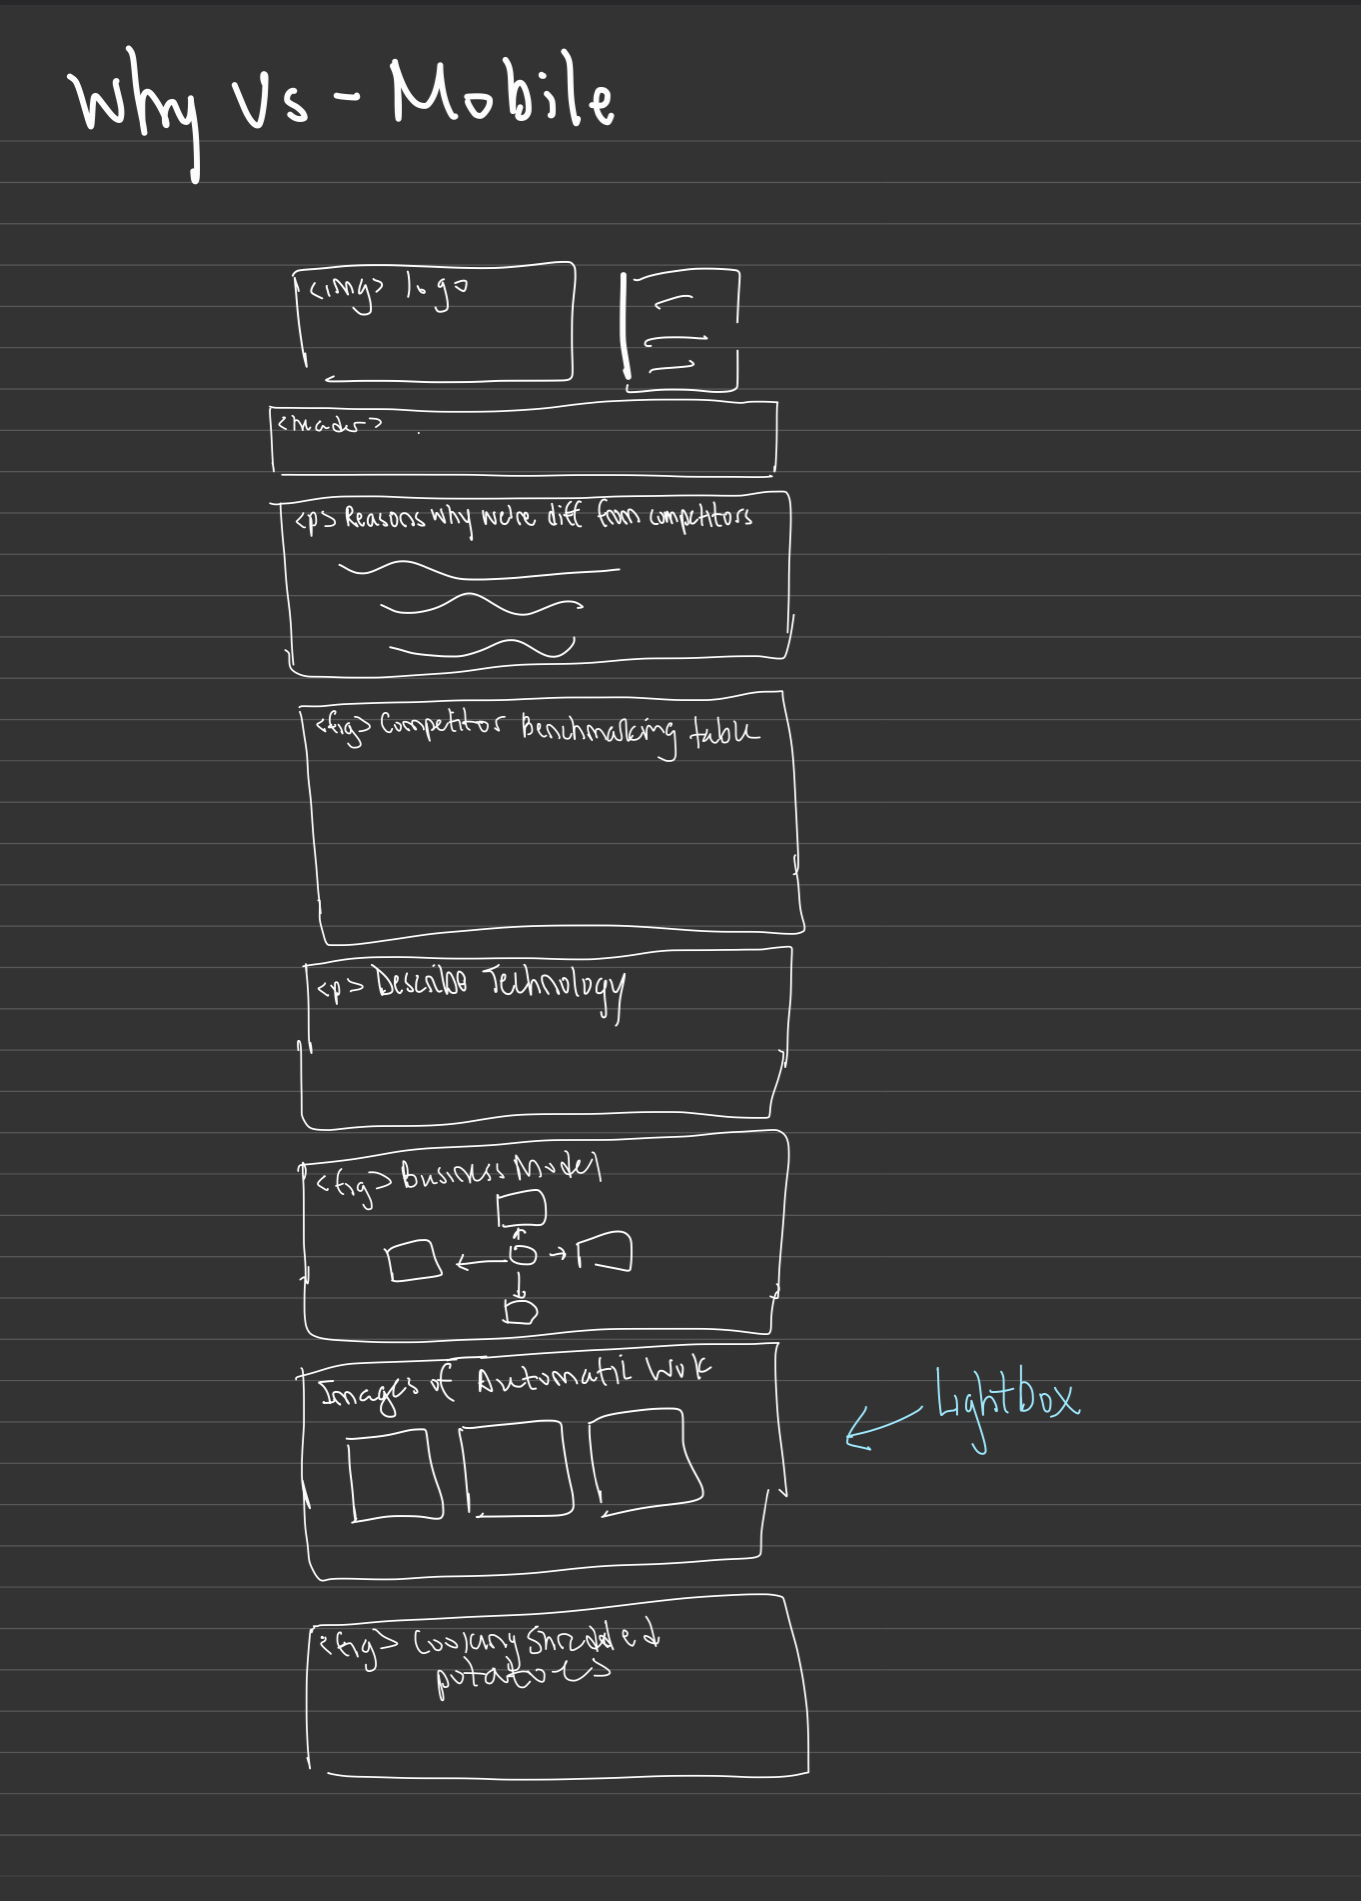 Why Us - Mobile
<img> logo
<header>
<p> Reasons why we're diff from competitors
<fig> Competitor Benchmarking table
<p> Describe Technology
<fig> Business Model
Images of Automatic Wok
Lightbox
<fig> Cooking Shredded
potatoes